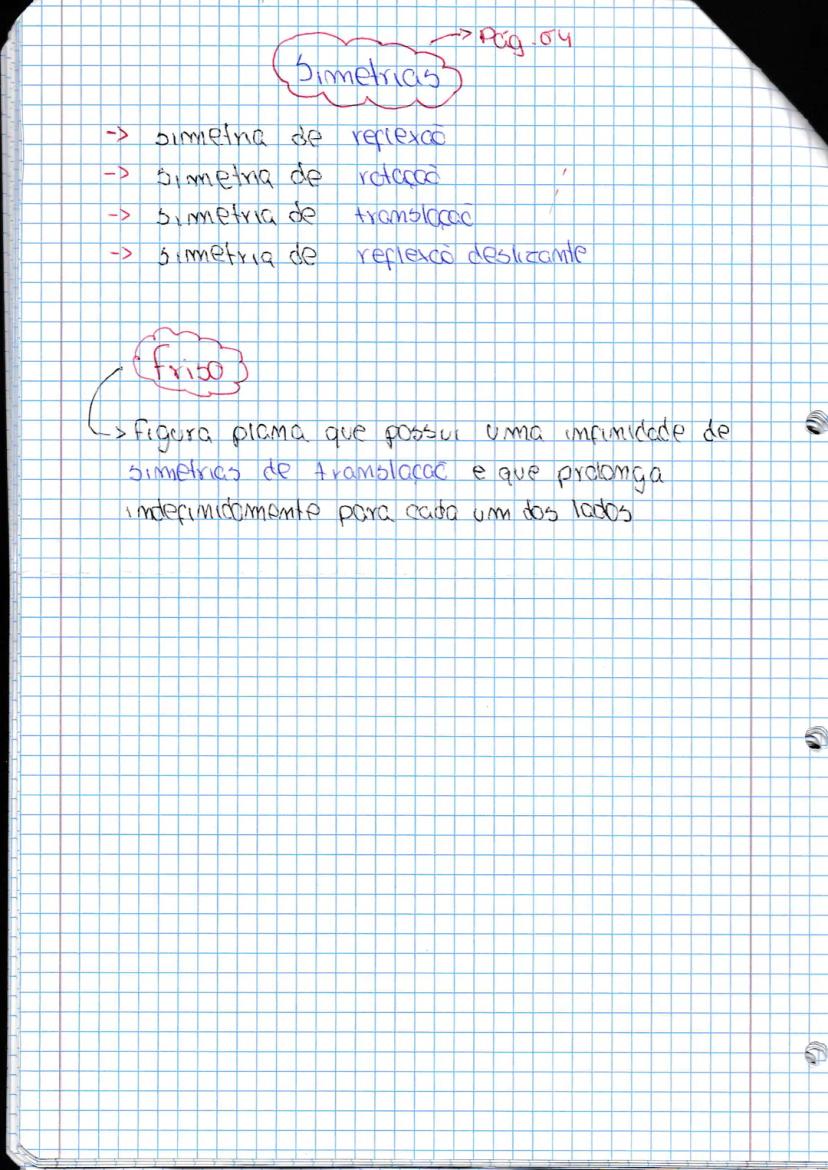 → Pág. 64
Simetrias
-> simetria de reflexão
-> simetria de rotação
-> simetria de translação
-> simetria de reflexão deslizante
friso
-> figura plana que possui uma infinidade de
simetrias de translação e que prolonga
indefinidamente para cada um dos lados